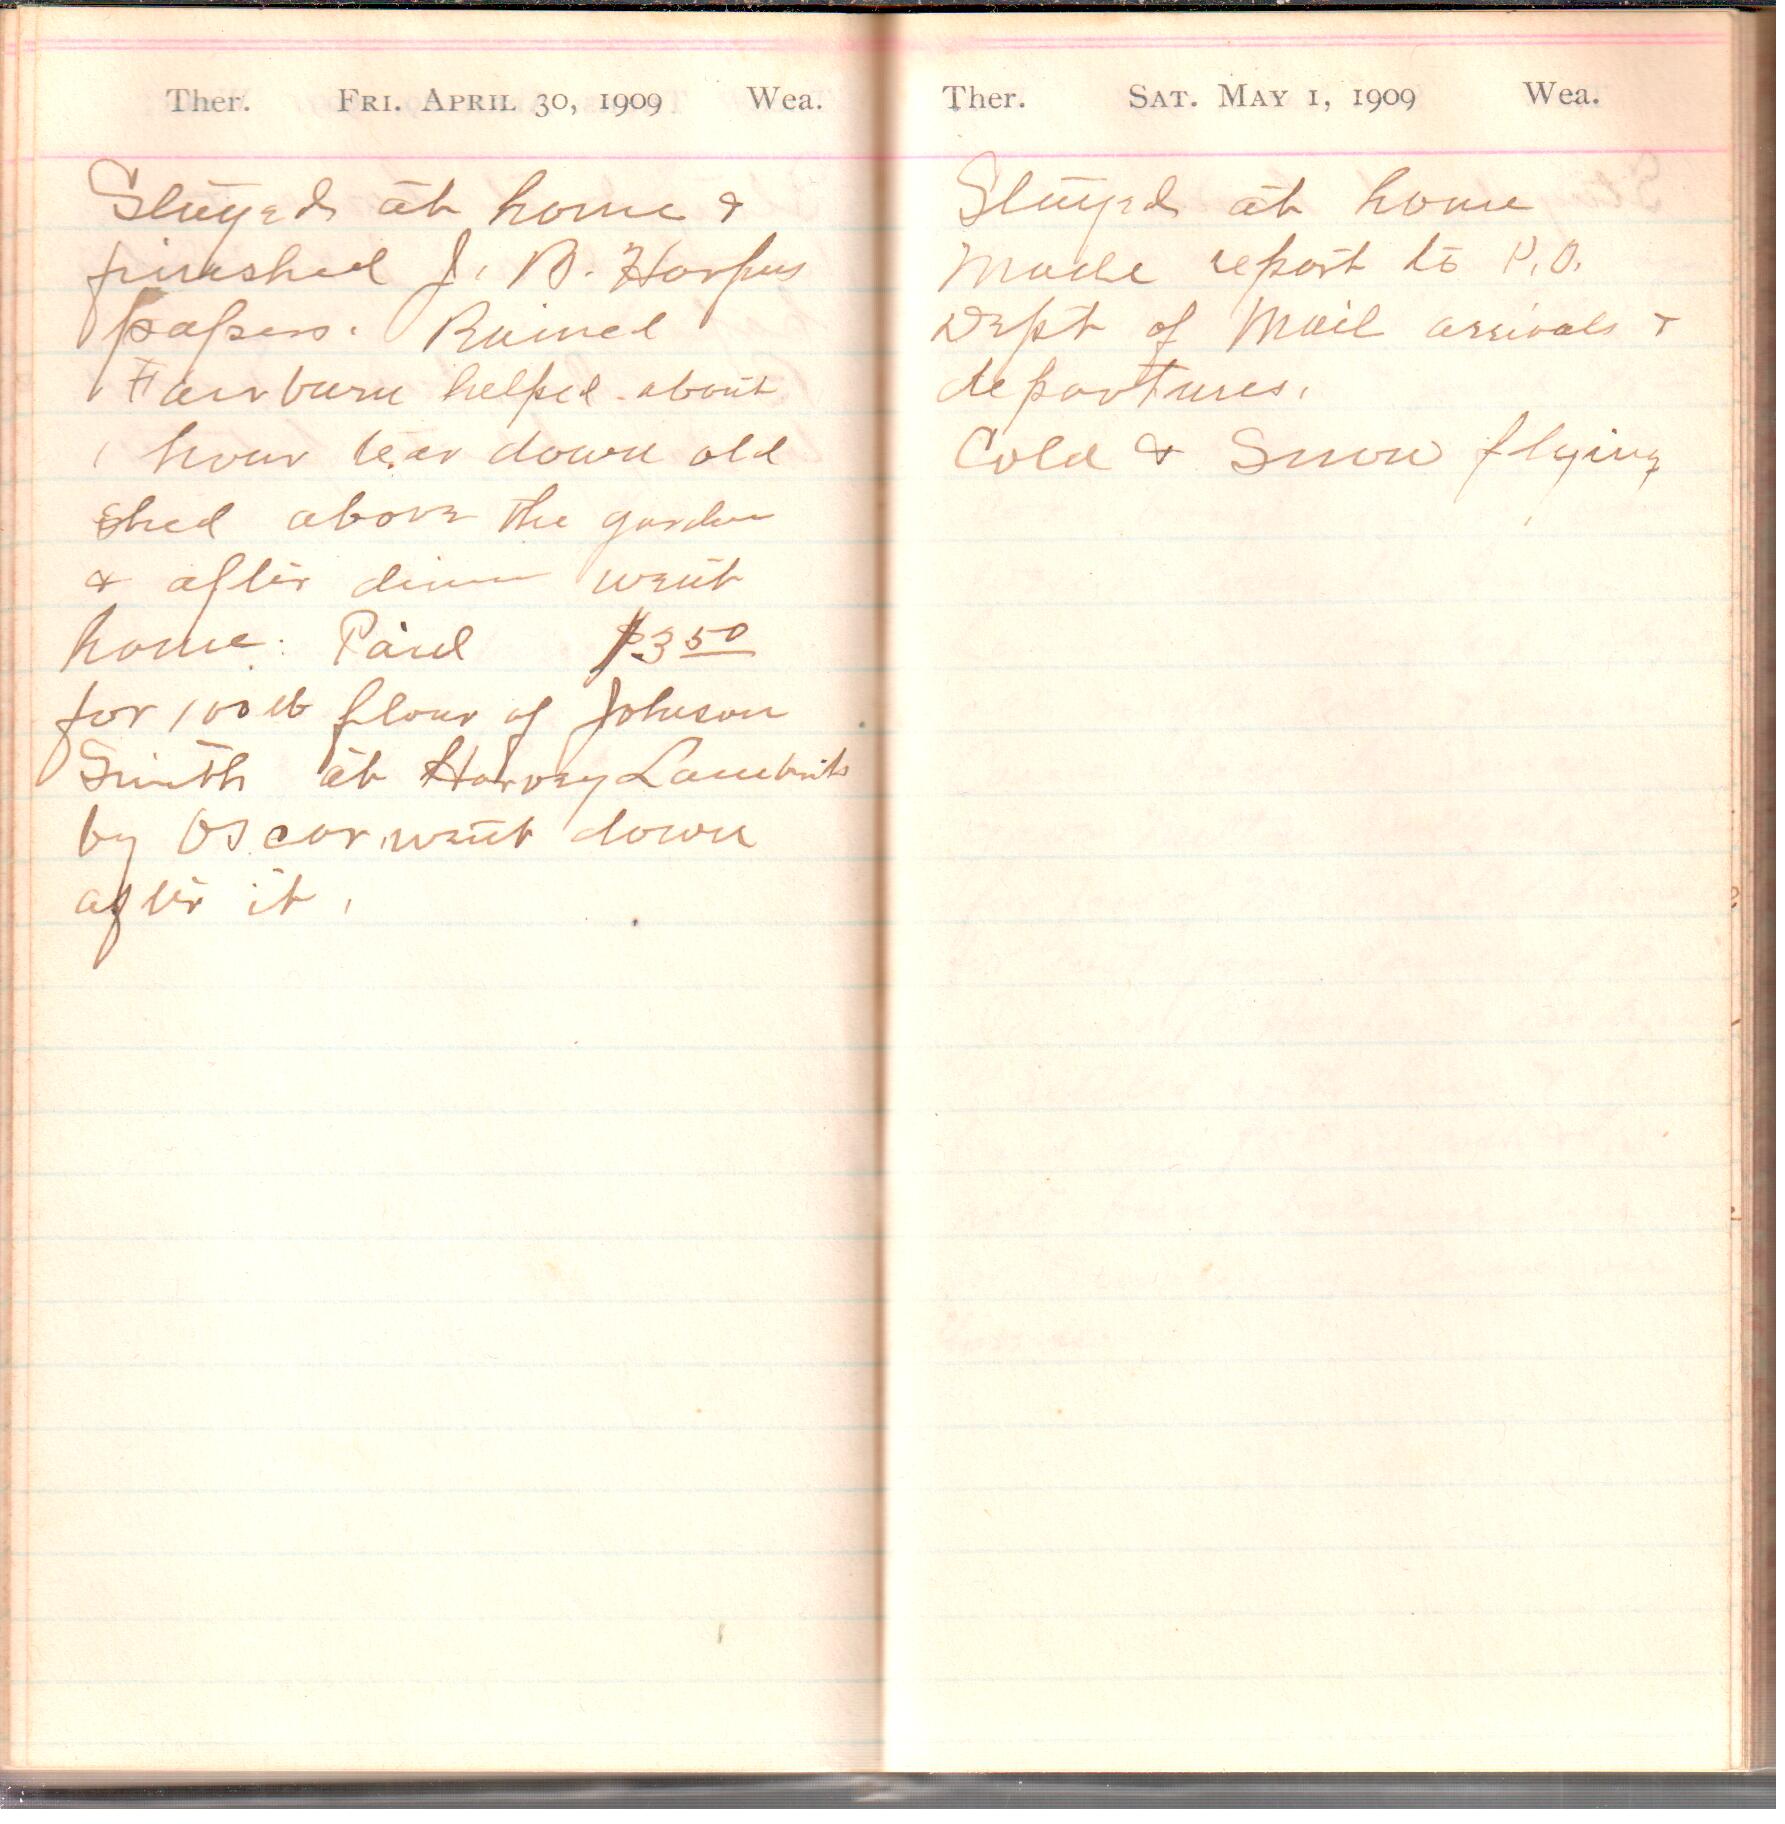 Ther. FRI. APRIL 30, 1909 Wea.
Stayed at home &
finished J. B. Harpers
papers. Rained
Fairburn helped about
1 hour tear down old
shed above the garden
& after dinner went
home. Paid $3 50
for 100 lb flour of Johnson
Smith at Harvey Lamberts
by Oscar. went down
after it.
Ther. SAT. MAY 1, 1909 Wea.
Stayed at home
Made report to P.O.
Dept of Mail arrivals &
departures.
Cold & Snow flying